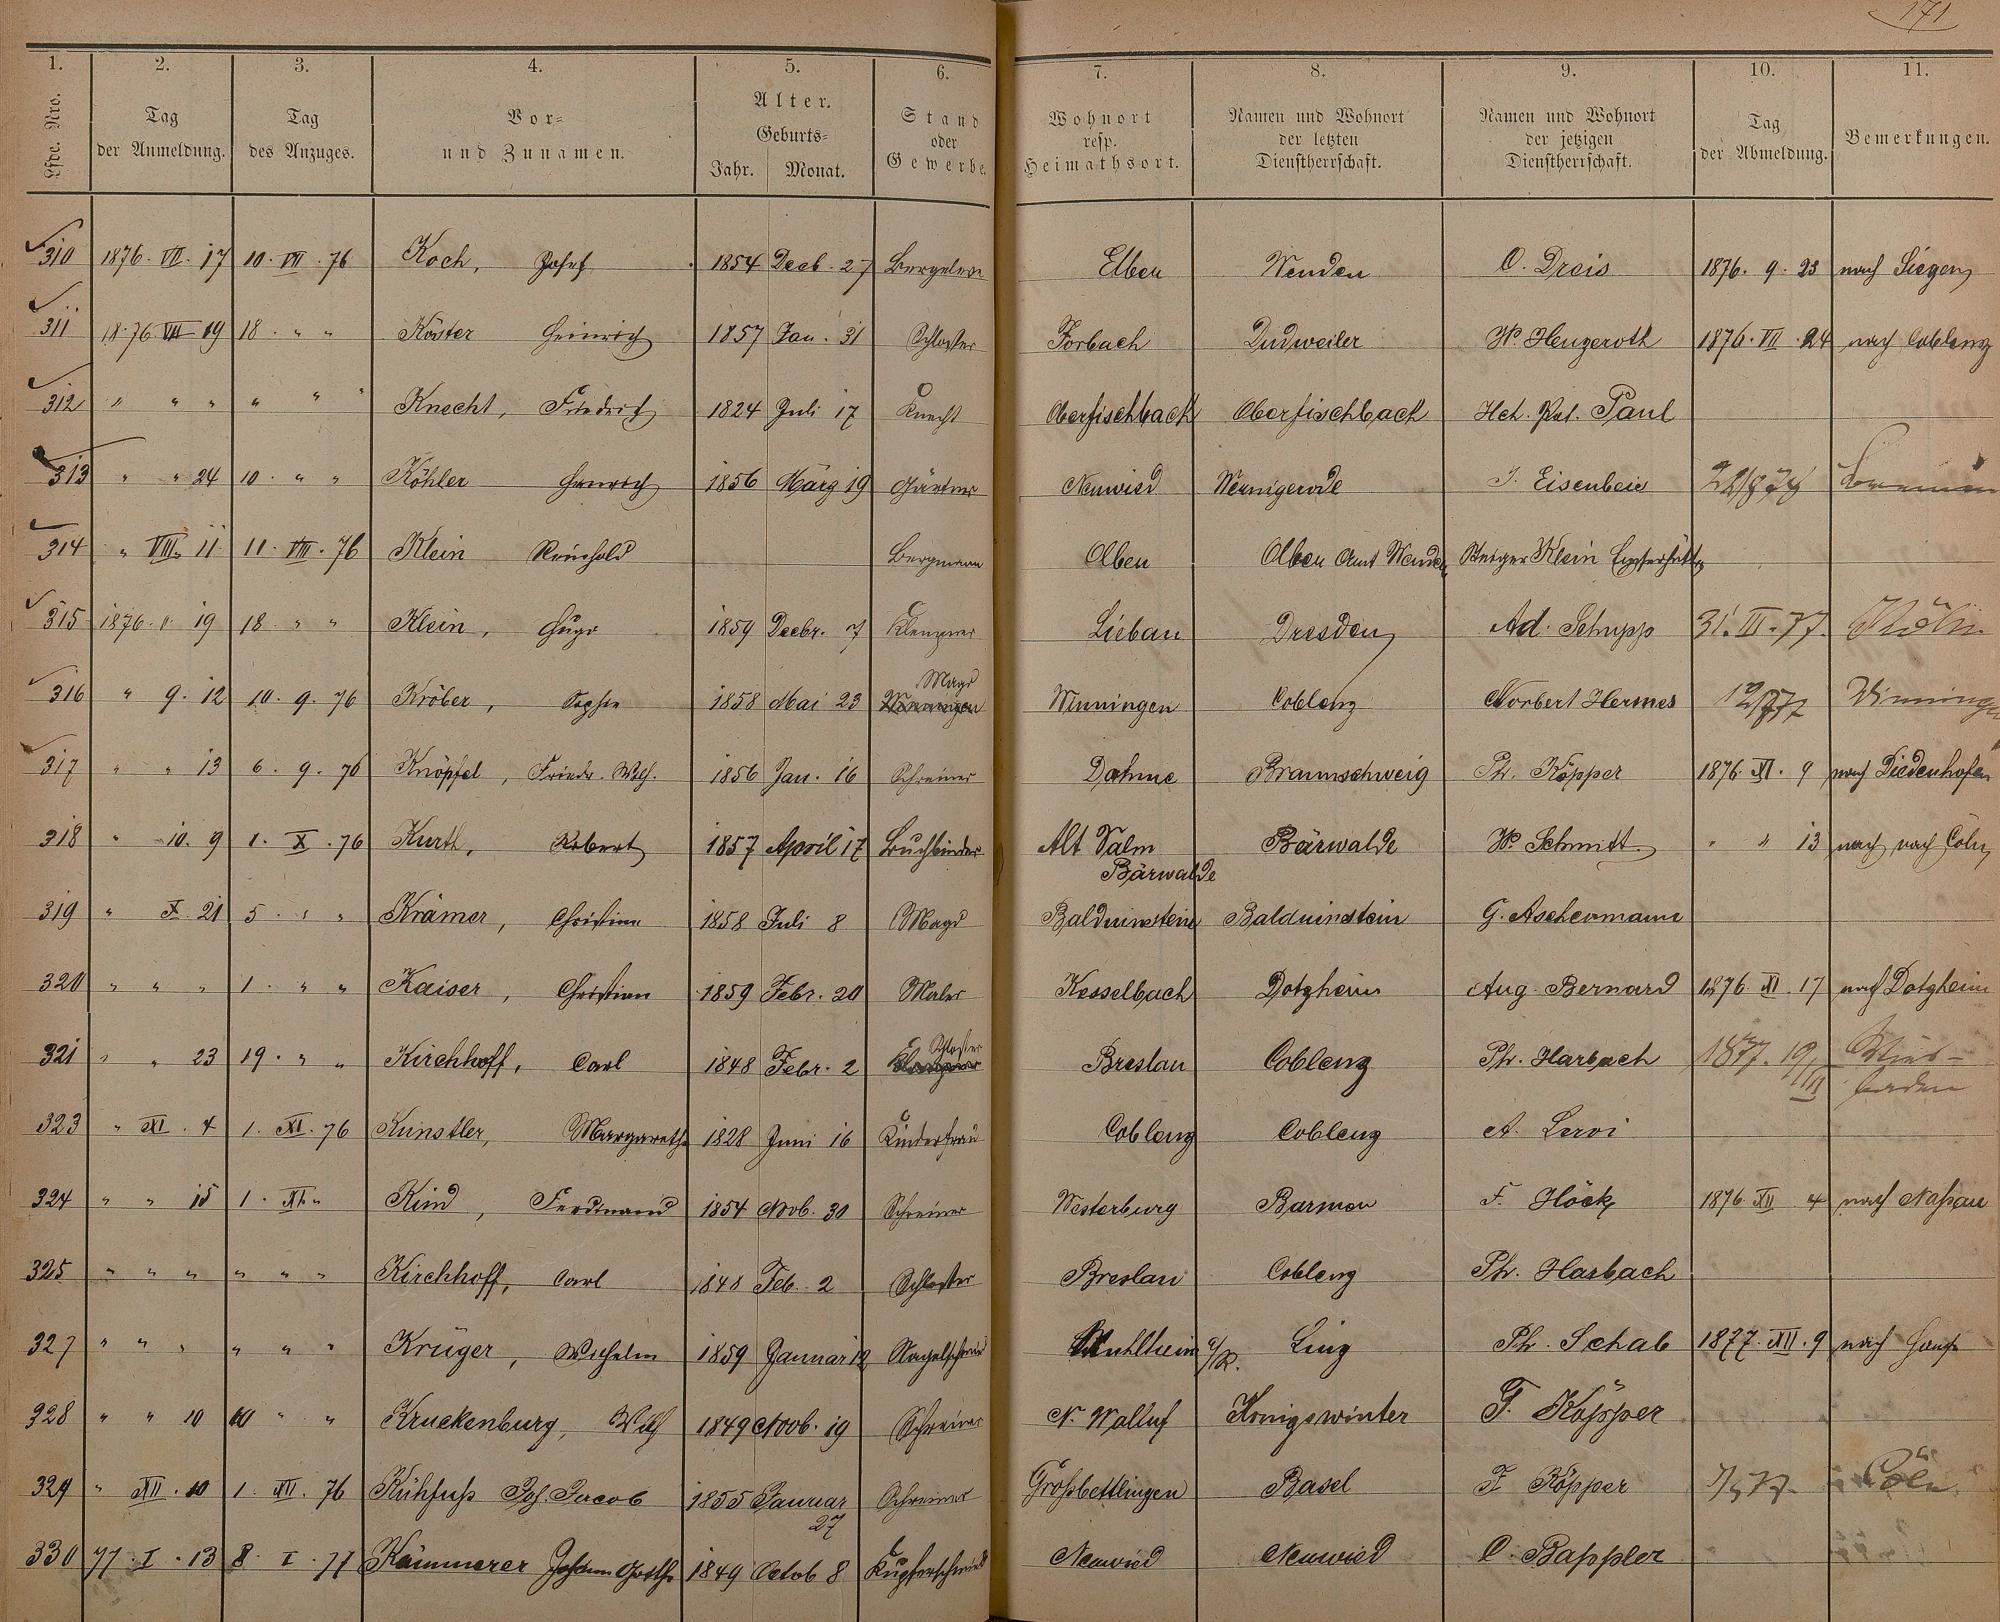 171
1. 2. 3. 4. 5. 6. 7. 8. 9. 10. 11.
Lfde. Nro. | Tag der Anmeldung. | Tag des Anzuges. | Vor- und Zunamen. | Alter. Geburts- Jahr. Monat. | Stand oder Gewerbe. | Wohnort resp. Heimathsort. | Namen und Wohnort der letzten Dienstherrschaft. | Namen und Wohnort der jetzigen Dienstherrschaft. | Tag der Abmeldung. | Bemerkungen.
310 1876. VII. 17 10. VII. 76 Koch, Josef 1854 Decb. 27 Elben Wenden O. Dreis 1876. 9. 23 nach Siegen
311 18.76 VIII 19 18. " " Köster Heinrich 1857 Jan. 31 Schlosser Forbach Dudweiler W. Henzeroth 1876. VII. 24 nach Coblenz
312 " " " " " " Knecht, Friedrich 1824 Juli 17 Knecht Oberfischbach Oberfischbach Hch. Pet. Paul
313 " " 24 10. " " Köhler Heinrich 1856 März 19 Gärtner Neuwied Wernigerode J. Eisenbeis
314 " VIII 11 11. VIII. 76 Klein Reinhold Bergmann Olben Olben Amt Wenden Steiger Klein Emserhütte
315 1876. " 19 18 " " Klein, Hugo 1859 Decbr. 7 Klempner Liebau Dresden Ad. Schupp 31. III. 77. Köln
316 " 9. 12 10. 9. 76 Kröber, Sophie 1858 Mai 23 Magd Winningen Coblenz Norbert Hermes Winningen
317 " " 13 6. 9. 76 Knöpfel, Friedr. Wilh. 1856 Jan. 16 Schreiner Dahme Braunschweig Ph. Köpper 1876. XI. 9 nach Diedenhofen
318 " 10. 9 1. X. 76 Kurth, Robert 1857 April 17 Buchbinder Alt Valm Bärwalde Bärwalde W. Schmitt " " 13 nach nach Cöln
319 " X. 21 5. " " Krämer, Christine 1858 Juli 8 Magd Balduinstein Balduinstein G. Aschermann
320 " " " 1. " " Kaiser, Christian 1859 Febr. 20 Maler Kesselbach Dotzheim Aug. Bernard 1876 XI. 17 nach Dotzheim
321 " " 23 19. " " Kirchhoff, Carl 1848 Febr. 2 Schlosser Breslau Coblenz Ph. Harbach 1877. 19/III Wiesbaden
323 " XI. 4 1. XI. 76 Künstler, Margarethe 1828 Juni 16 Kinderfrau Coblenz Coblenz A. Leroi
324 " " 15 1. XI. " Kind, Ferdinand 1854 Nov. 30 Schreiner Westerburg Barmen F. Höck 1876 XII. 4 nach Nassau
325 " " " " " " Kirchhoff, Carl 1848 Feb. 2 Schlosser Breslau Coblenz Ph. Harbach
327 " " " " " " Krüger, Wilhelm 1859 Januar 12 Nagelschmied Muhlheim a/R. Linz Ph. Schab 1877. XII. 9 nach Hause
328 " " 10 10 " " Kruckenburg, Wilh 1849 Novb. 19 Schreiner N. Walluf Königswinter F. Köpper
329 " XII. 10 1. XII. 76 Kühfuß Joh. Jacob 1855 Januar 27 Schreiner Großbettlingen Basel F Köpper Cöln
330 77. I. 13 8. I. 77 Kämmerer Johann 1849 Octob 8 Kupferschmied Neuwied Neuwied C. Bappler